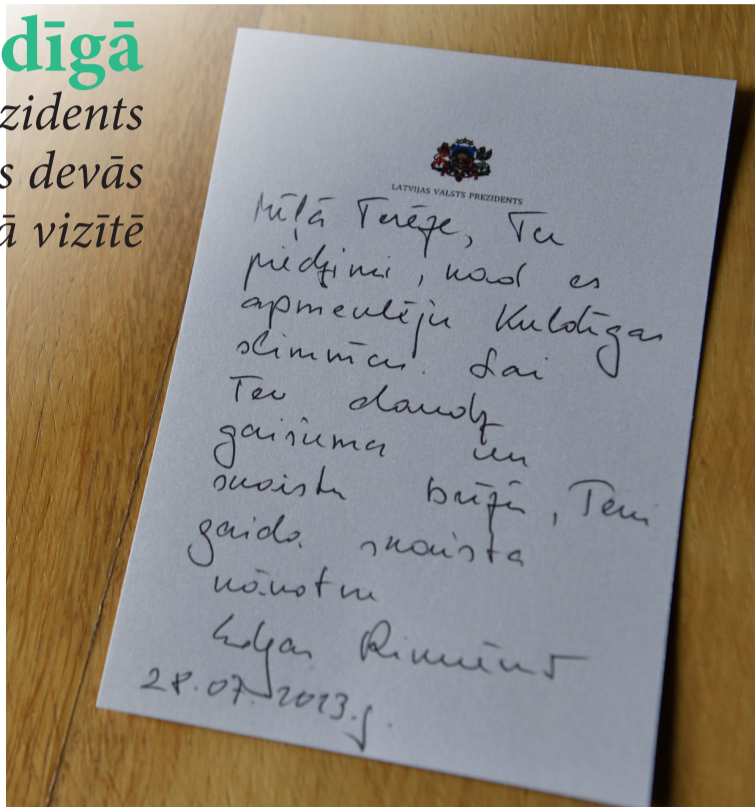 dīgā
zidents
s devās
ā vizītē
LATVIJAS VALSTS PREZIDENTS
Mīļā Terēze, Tu
piedzimi, kad es
apmeklēju Kuldīgas
slimnīcu. Lai
Tev daudz
gaišuma un
skaistu brīžu, Tevi
gaida skaista
nākotne
Edgars Rinkēvičs
28.07.2023.g.